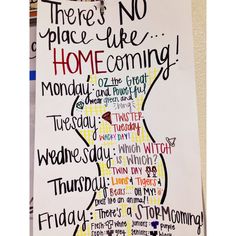 There's NO
place like...
HOMEcoming!
Monday: OZ the Great
and Powerful
wear green and
Tuesday: TWISTER
Tuesday
WACKY DAY!
Wednesday: Which WITCH
is Which?
TWIN DAY
Thursday: Lions & Tigers &
Bears... OH MY!
dress like an animal!
Friday: There's a STORMcoming!
Fresh White Juniors purple
Soph